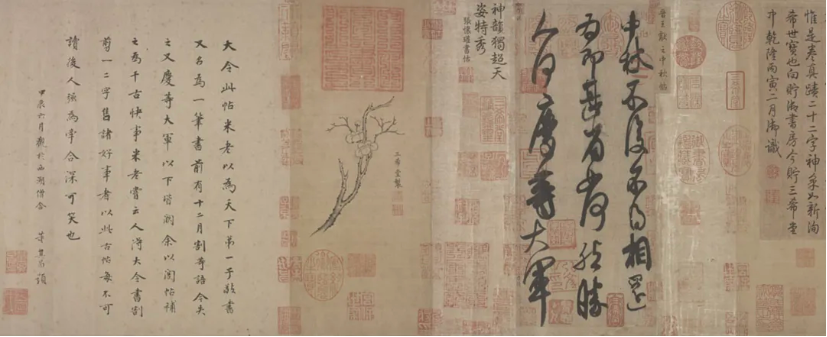 惟是卷真蹟二十二字神采如新洵
希世寶也向貯御書房今貯三希堂
中乾隆丙寅二月御識
晉王獻之中秋帖
中秋不復不得相還
為即甚省如何然勝
人何慶等大軍
神韻獨超天
姿特秀
張懷瓘書估
三希堂製
大令此帖米老以為天下第一子敬書
又名為一筆書前有十二月割等語今失
之又慶等大軍以下皆闕余以閣帖補
之為千古快事米老嘗云人得大令書割
剪一二字售諸好事者以此古帖每不可
讀後人強為牽合深可笑也
甲辰六月觀於西湖僧舍 董其昌題